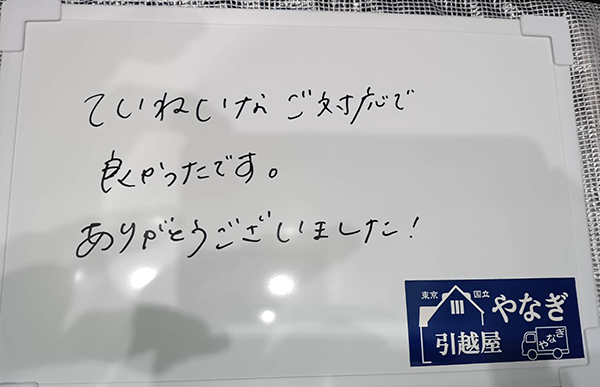 ていねいな ご対応で
良かったです。
ありがとうございました!
東京 国立
やなぎ
引越屋
やなぎ